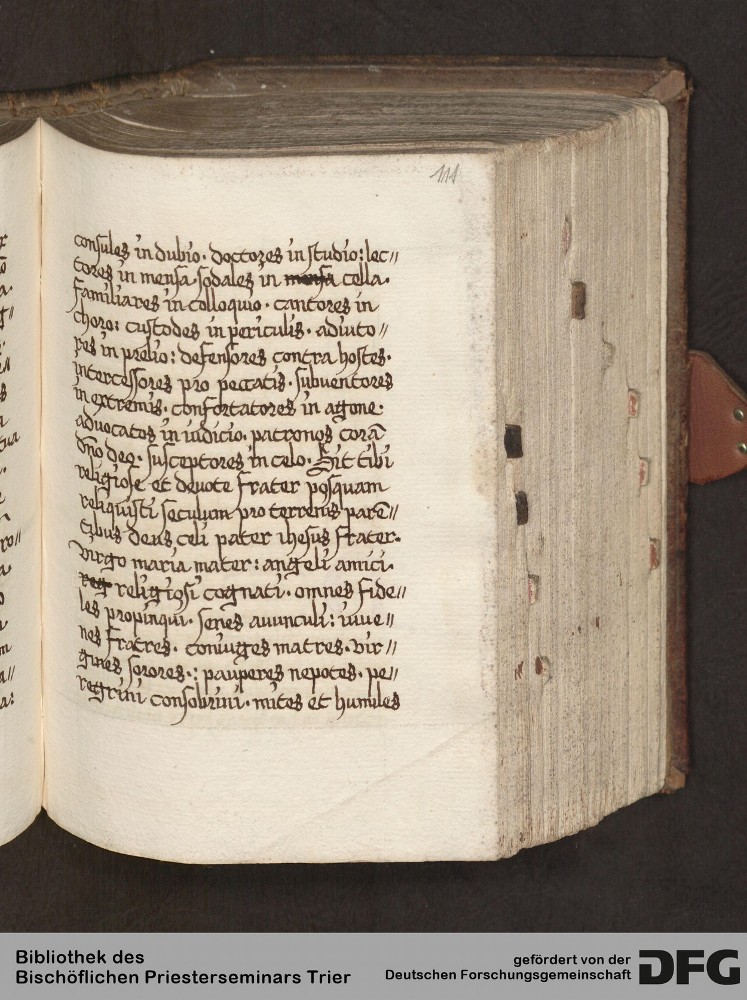 111
consules in dubio· doctores in studio: lec//
tores in mensa· sodales in mensa cella·
familiares in colloquio· cantores in
choro: custodes in periculis· adiuto//
res in prelio: defensores contra hostes·
intercessores pro peccatis· subuentores
in extremis· confortatores in agone·
aduocatos in iudicio· patronos corā
dño deo· susceptores in celo· Sit tibi
religiose et deuote frater posquam
reliquisti seculum pro terrenis parē//
tibus deus celi pater ihesus frater·
virgo maria mater: angeli amici·
reg religiosi cognati· omnes fide//
les propinqui· senes auunculi: iuue//
nes fratres· coniuges matres· vir//
gines sorores·: pauperes nepotes· pe//
regrini consobrini· mites et humiles
Bibliothek des
Bischöflichen Priesterseminars Trier
gefördert von der
Deutschen Forschungsgemeinschaft
DFG